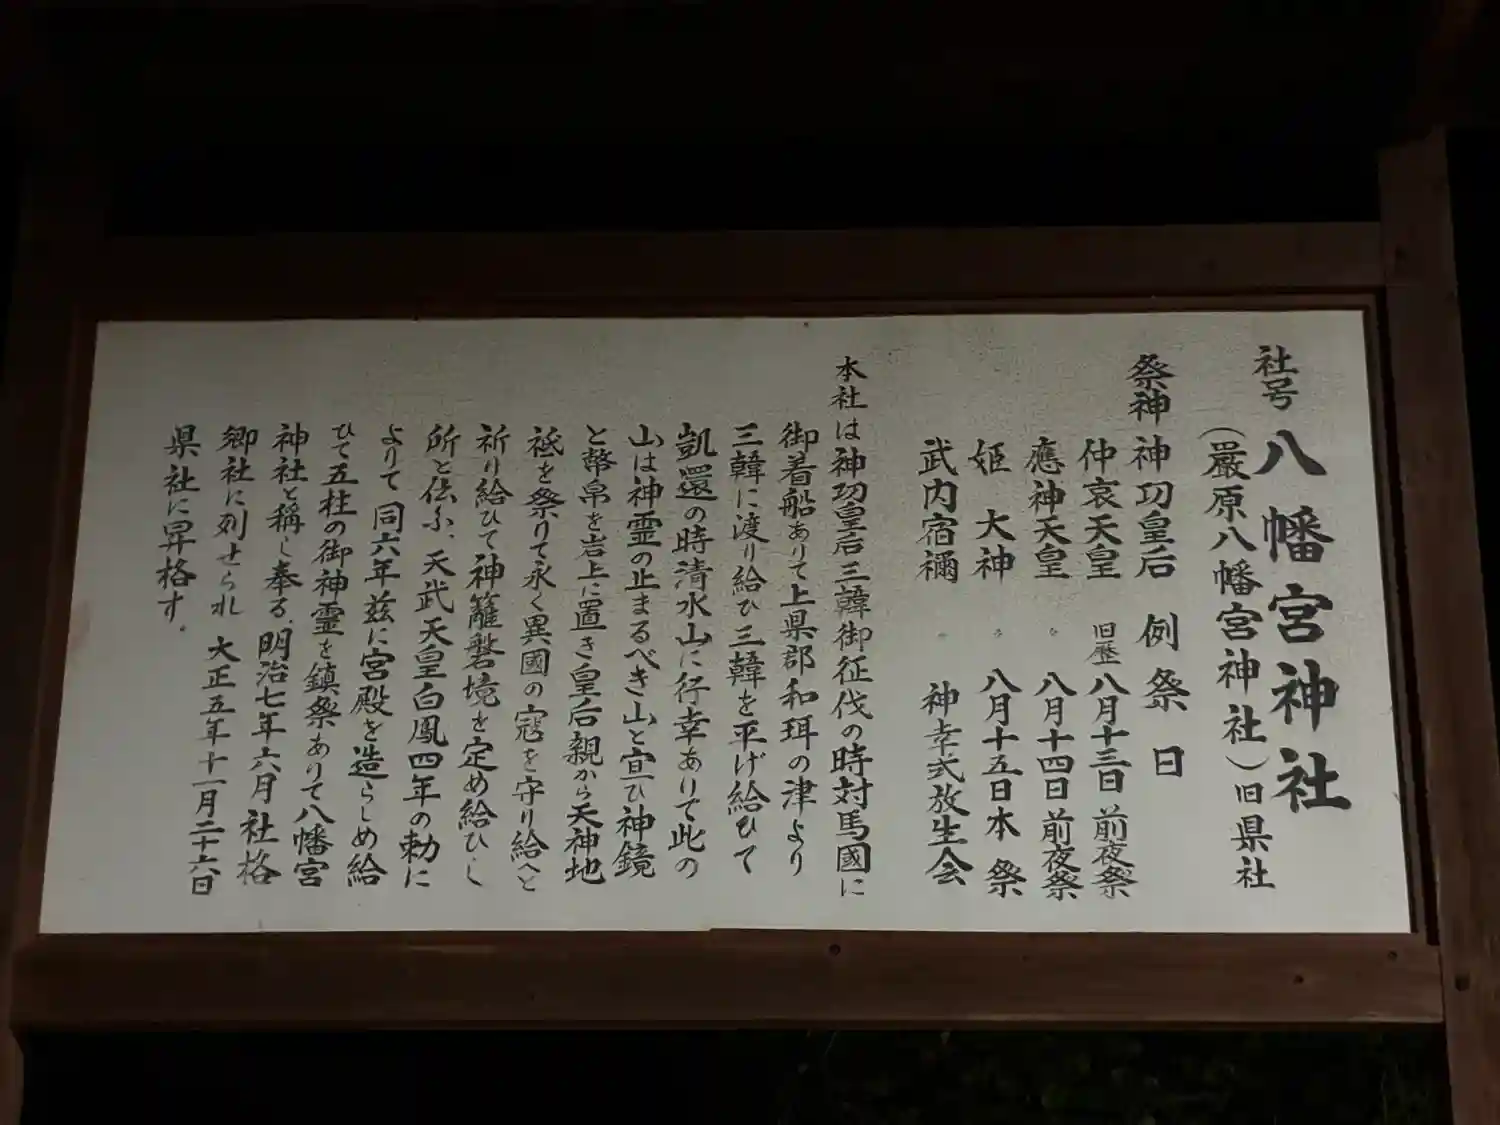 社号 八幡宮神社
(嚴原八幡宮神社)旧県社
祭神 神功皇后 例祭日
仲哀天皇 旧歴八月十三日 前夜祭
應神天皇 〃 八月十四日 前夜祭
姫大神 〃 八月十五日本祭
武内宿禰 〃 神幸式放生会
本社は神功皇后三韓御征伐の時対馬國に
御着船ありて上県郡和珥の津より
三韓に渡り給ひ三韓を平げ給ひて
凱還の時清水山に行幸ありて此の
山は神霊の止まるべき山と宣ひ神鏡
と幣帛を岩上に置き皇后親から天神地
祗を祭りて永く異國の寇を守り給へと
祈り給ひて神籬磐境を定め給ひし
所と伝ふ、天武天皇白鳳四年の勅に
よりて同六年茲に宮殿を造らしめ給
ひて五柱の御神霊を鎮祭ありて八幡宮
神社と稱し奉る、明治七年六月社格
郷社に列せられ 大正五年十一月二十六日
県社に昇格す。